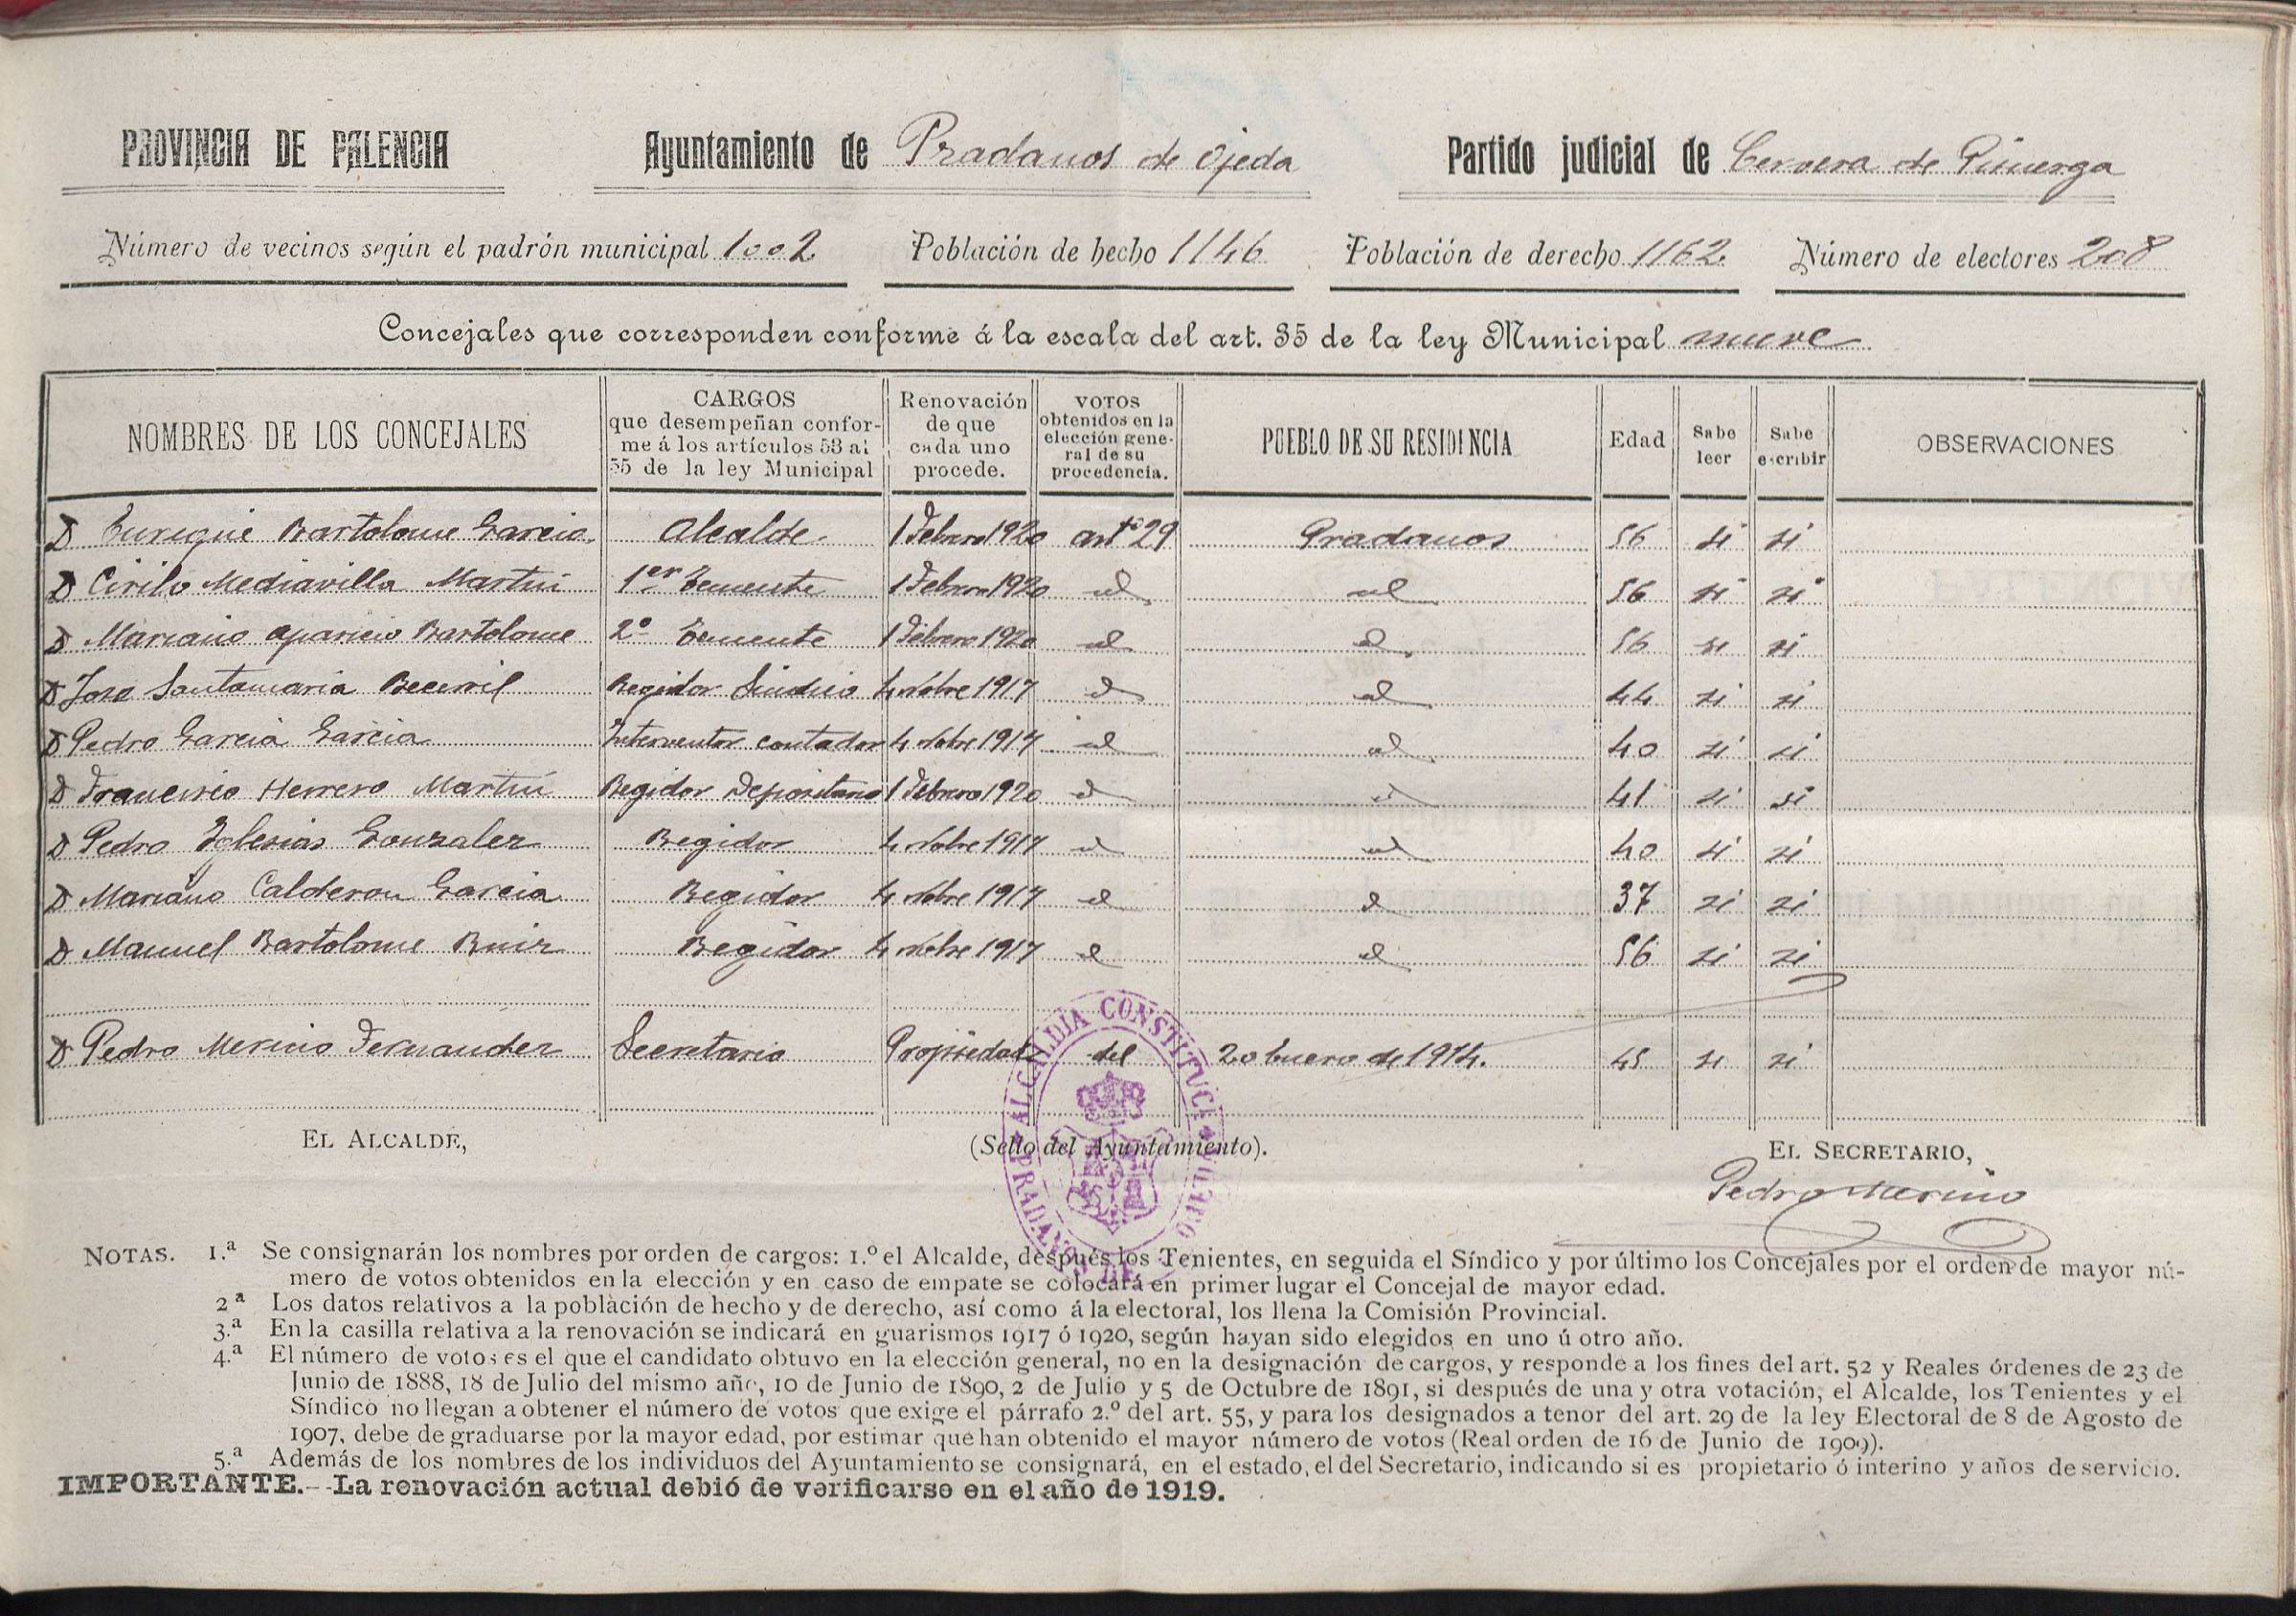 PROVINCIA DE PALENCIA Ayuntamiento de Pradanos de Ojeda Partido judicial de Cervera de Pisuerga
Número de vecinos según el padrón municipal 1002 Población de hecho 1146 Población de derecho 1162 Número de electores 208
Concejales que corresponden conforme á la escala del art. 35 de la ley Municipal nueve
NOMBRES DE LOS CONCEJALES CARGOS que desempeñan conforme á los artículos 53 al 55 de la ley Municipal Renovación de que cada uno procede. VOTOS obtenidos en la elección general de su procedencia. PUEBLO DE SU RESIDENCIA Edad Sabe leer Sabe escribir OBSERVACIONES
D Bartolome Garcia Alcalde 1 Febrero 1920 artº 29 Pradanos 56 si si
D Cirilo Mediavilla Martin 1er Teniente 1 Febrero 1920 id id 56 si si
D Mariano Aparicio Bartolome 2º Teniente 1 Febrero 1920 id id 56 si si
D Jose Santamaria Becerril Regidor Sindico 4 Nobre 1917 id id 44 si si
D Pedro Garcia Garcia Interventor contador 4 Nobre 1917 id id 40 si si
D Francisco Herrero Martin Regidor Depositario 1 Febrero 1920 id id 41 si si
D Pedro Yglesias Gonzalez Regidor 4 Nobre 1917 id id 40 si si
D Mariano Calderon Garcia Regidor 4 Nobre 1917 id id 37 si si
D Manuel Bartolome Ruiz Regidor 4 Nobre 1917 id id 56 si si
D Pedro Merino Fernandez Secretario Propiedad del 20 Enero de 1914. 45 si si
EL ALCALDE, (Sello del Ayuntamiento). EL SECRETARIO,
ALCALDIA CONSTITUCIONAL PRADANOS DE
Pedro Merino
NOTAS. 1.ª Se consignarán los nombres por orden de cargos: 1.º el Alcalde, después los Tenientes, en seguida el Síndico y por último los Concejales por el orden de mayor nú-
mero de votos obtenidos en la elección y en caso de empate se colocará en primer lugar el Concejal de mayor edad.
2ª Los datos relativos a la población de hecho y de derecho, así como á la electoral, los llena la Comisión Provincial.
3.ª En la casilla relativa a la renovación se indicará en guarismos 1917 ó 1920, según hayan sido elegidos en uno ú otro año.
4.ª El número de votos es el que el candidato obtuvo en la elección general, no en la designación de cargos, y responde a los fines del art. 52 y Reales órdenes de 23 de
Junio de 1888, 18 de Julio del mismo año, 10 de Junio de 1890, 2 de Julio y 5 de Octubre de 1891, si después de una y otra votación, el Alcalde, los Tenientes y el
Síndico no llegan a obtener el número de votos que exige el párrafo 2.º del art. 55, y para los designados a tenor del art. 29 de la ley Electoral de 8 de Agosto de
1907, debe de graduarse por la mayor edad, por estimar que han obtenido el mayor número de votos (Real orden de 16 de Junio de 1909).
5.ª Además de los nombres de los individuos del Ayuntamiento se consignará, en el estado, el del Secretario, indicando si es propietario ó interino y años de servicio.
IMPORTANTE.--La renovación actual debió de verificarse en el año de 1919.